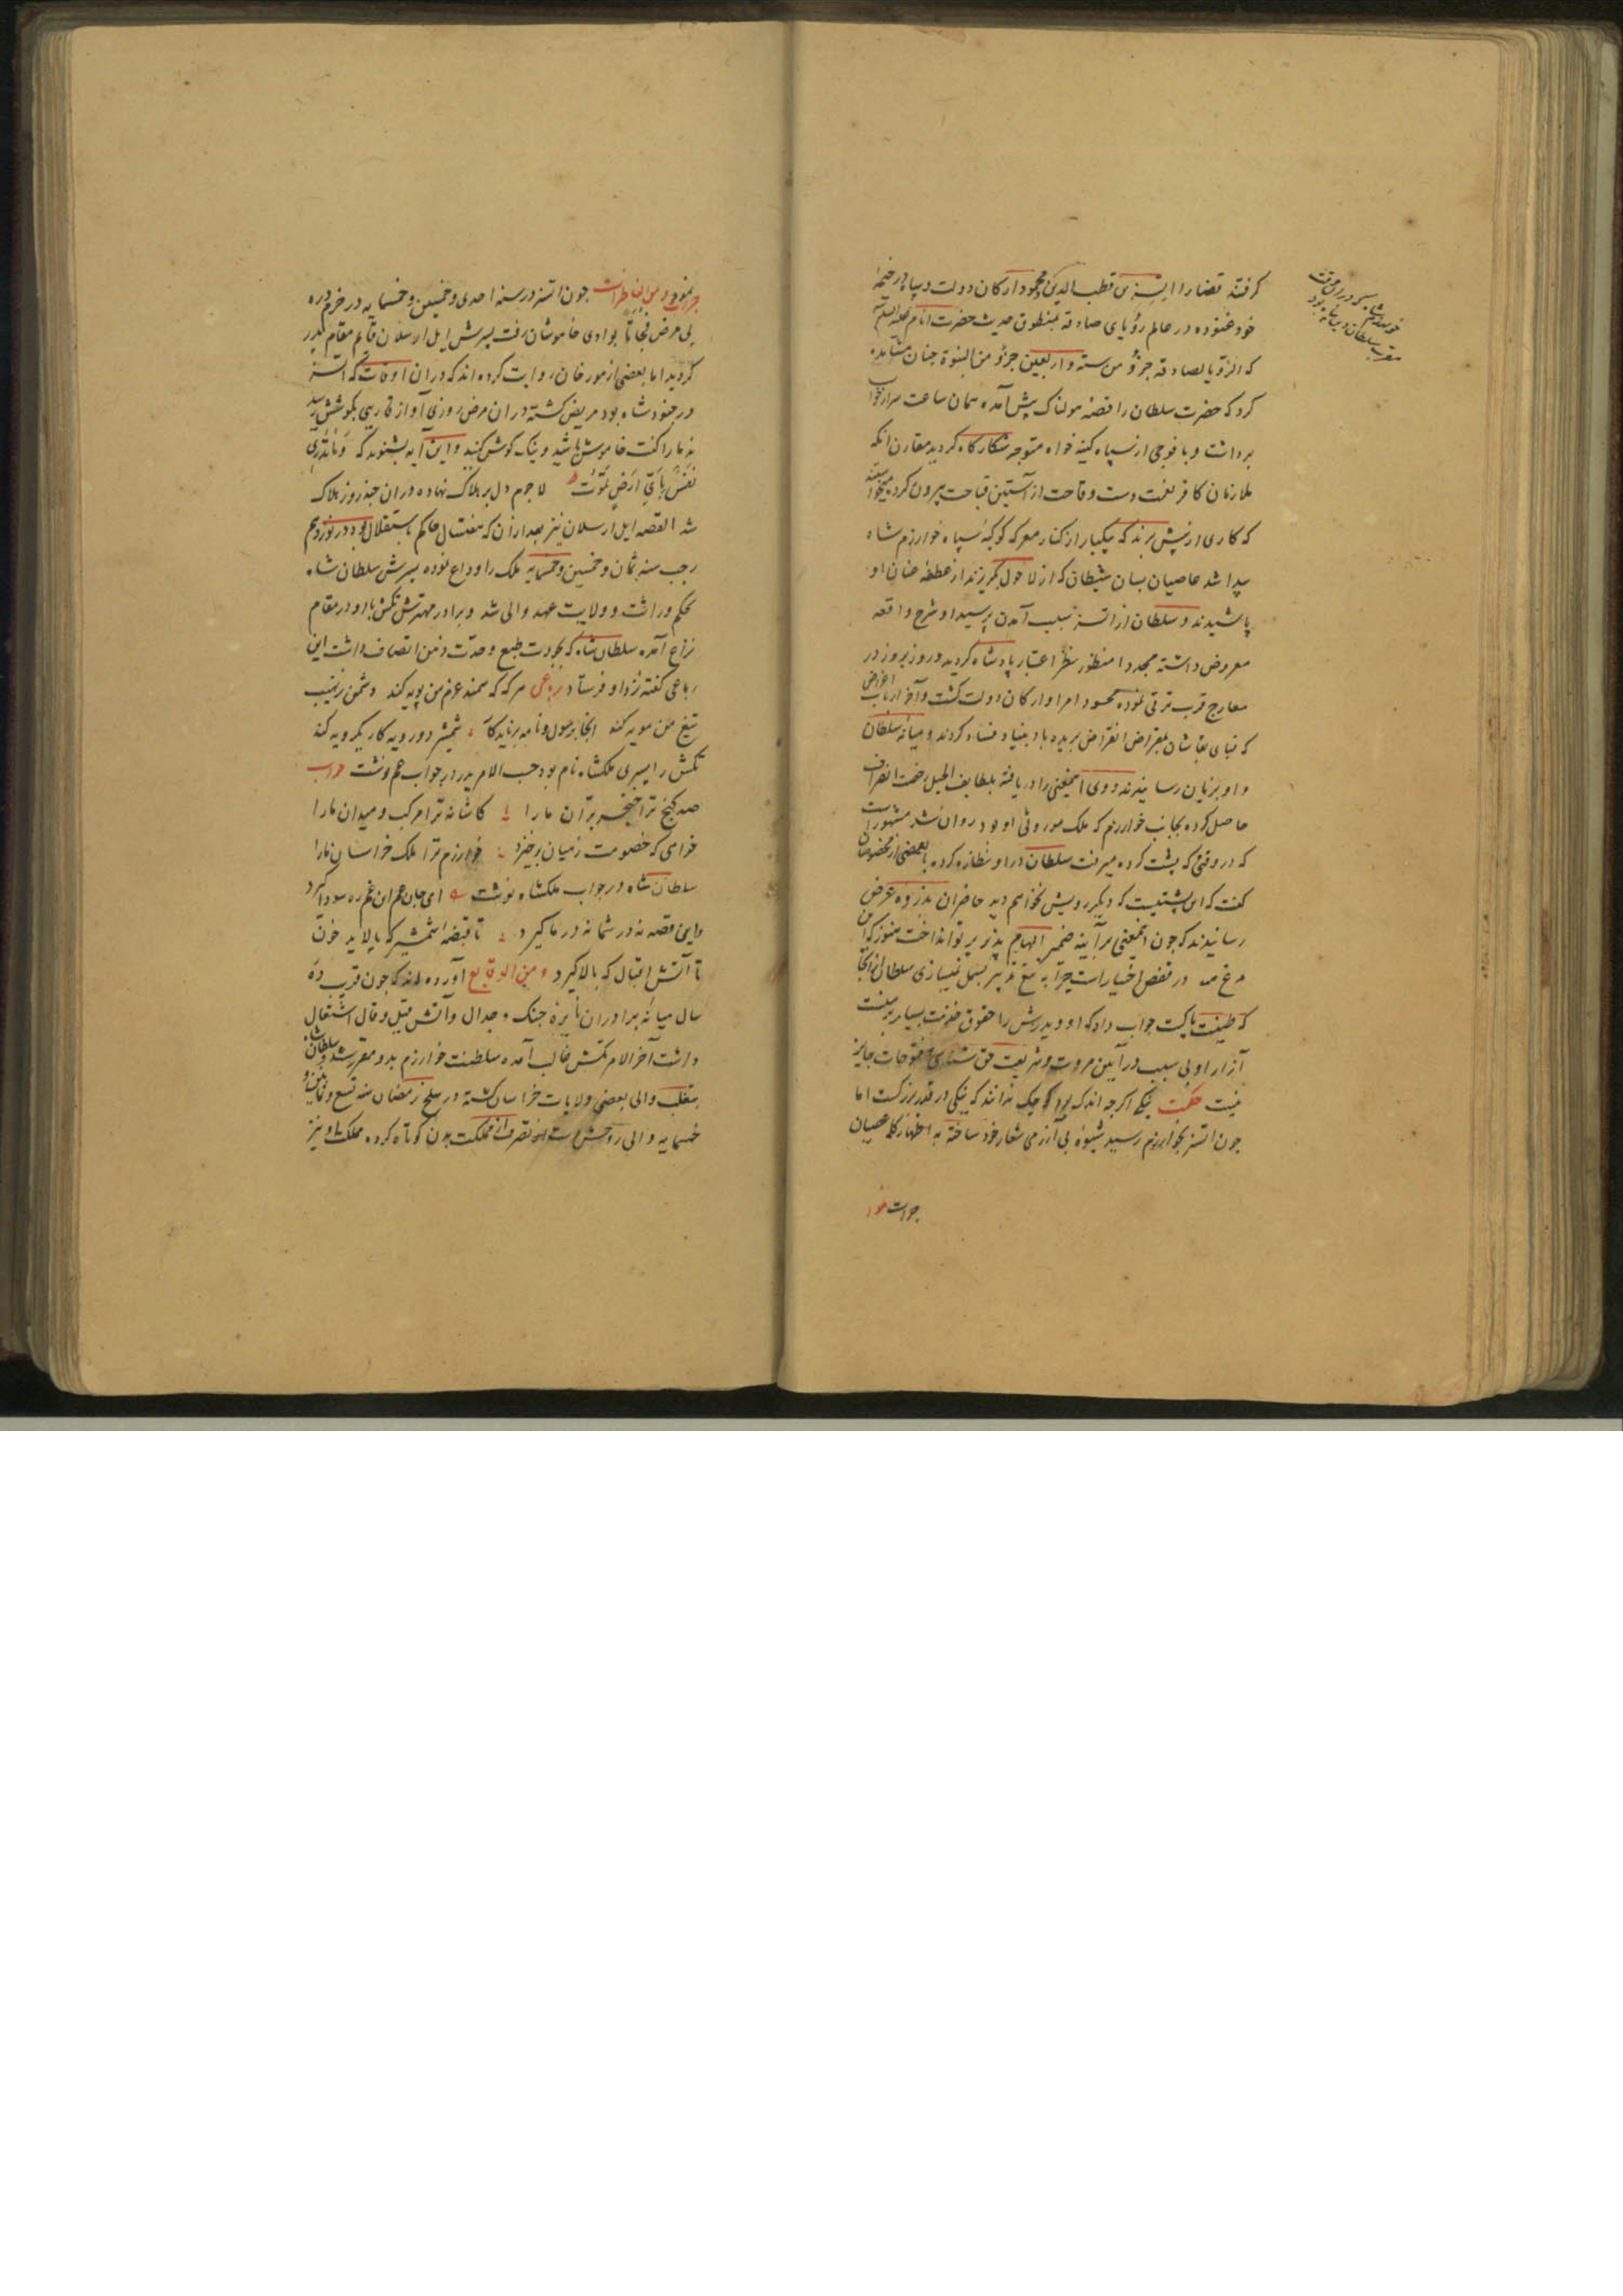 گرفتند قضا را اتسز بن قطب الدین محمود ارکان دولت و سپاه در خیمهٔ
خود غنوده در عالم رؤیای صادقه بمنطوق حدیث حضرت انام علیه السلام
که الرؤیا الصادقه جزؤ من ستة و اربعین جزؤ من النبوة چنان مشاهده
کرد که حضرت سلطان را قضیه هولناک پیش آمده همان ساعت سر از خواب
برداشت و با فوجی از سپاه کینه خواه متوجه شکارگاه کردید مقارن انکه
ملازمان کافر نعمت دست وقاحت از آستین قباحت بیرون کرده میخواستند
که کاری از پیش برند که بیکبار از کنار معرکه کوکبهٔ سپاه خوارزم شاه
پیدا شد عاصیان بسان شیطان که از لاحول کریزند از عطفه عنان او
پاشیدند و سلطان از اتسز سبب آمدن پرسید او شرح واقعه
معروض داشته مجددا منظور نظر اعتبار پادشاه کردید و روز بروز در
معارج قرب ترقی نموده محسود امرا و ارکان دولت کشت و آخر ارباب اغراض
که قبای بقاشان بمقراض انقراض بریده باد بنیاد فساد کردند و میانهٔ سلطان
و او بزیان رسانیدند و وی اینمعنی را دریافته بلطایف الحیل رخصت انصراف
حاصل کرده بجانب خوارزم که ملک موروثی او بود روان شد مشهور است
که در وقتی که پشت کرده میرفت سلطان در او نظاره کرده با بعضی از مخصوصان
کفت که این پشتیست که دیکر رویش نخواهم دید حاضران بذروه عرض
رسانیدند که چون اینمعنی بر آیینه ضمیر الهام پذیر پرتو انداخت هنوز که این
مرغ در قفص اختیار است چرا به تیغ تدبیر بسمل نمیسازی سلطان از آنجا
که طینت پاکت جواب داد که او و پدرش را حقوق خدمت بسیار بر ماست
آزار او بی سبب در آیین مروت و شریعت حق شناسی و فتوحات جایز
نیست حکمت نیکی اکرچه اندک بود کوچک ندانند که نیکی در قدر بزرکست اما
چون اتسز بخوارزم رسید شیوهٔ بی آزرمی شعار خود ساخته به اظهار کلمه عصیان
جرات نمود
جرات نمود و من المناظرات چون اتسز در سنه احدی و خمسین و خمسمایه در خرم دره
بی مرض فجأتا بوادی خاموشان رفت پسرش ایل ارسلان قایم مقام پدر
کردید اما بعضی از مورخان روایت کرده اند که دران اوقات که اتسز
در جنودشاه بود مریض کشته دران مرض روزی آواز قاریی بکوشش رسید
ندما را کفت خاموش باشید و نیک کوش کنید و این آیه بشنوند که وَمَا تَدْرِی
نَفْسٌ بِاَیِّ اَرْضٍ تَمُوتُ لاجرم دل بر هلاک نهاده دران چند روز هلاک
شد القصه ایل ارسلان نیز بعد ازان که هفت سال حاکم باستقلال بود در نوزدهم
رجب سنه ثمان و خمسین و خمسمایه ملک را وداع نموده پسرش سلطان شاه
بحکم وراثت و ولایت عهد والی شد و برادر مهترش تکش با او در مقام
نزاع آمده سلطان شاه که بجودت طبع و حدت ذهن اتصاف داشت این
رباعی کفته نزد او فرستاد رباعی هرکه که سمند عزم من پویه کند دشمن ز نهیب
تیغ من مویه کند اینجا برسول و نامه برناید کار شمشیر دو رویه کار یکرویه کند
تکش را پسری ملکشاه نام بود حسب الامر پدر در جواب عم نوشت جواب
صد کنج ترا خنجر بران ما را کاشانه ترا مرکب و میدان ما را
خواهی که خصومت ز میان برخیزد خوارزم ترا ملک خراسان ما را
سلطان شاه در جواب ملکشاه نوشت ای جان عم این غم ره سودا کیرد
واین قصه نه در شما نه در ما کیرد تا قبضهٔ شمشیر که پالاید خون
تا آتش اقبال که بالا کیرد و من الوقایع آورده اند که چون قریب ده
سال میانهٔ برادران نایرهٔ جنک و جدال و آتش قیل و قال اشتعال
داشت آخر الامر تکش غالب آمده سلطنت خوارزم بدو مقرر شد و سلطان شاه
متغلب والی بعضی ولایات خراسان کشته در سلخ رمضان سنه تسع و ثمانین و
خمسمایه والی روحش دست تصرف از مملکت بدن کوتاه کرده مملکت او نیز